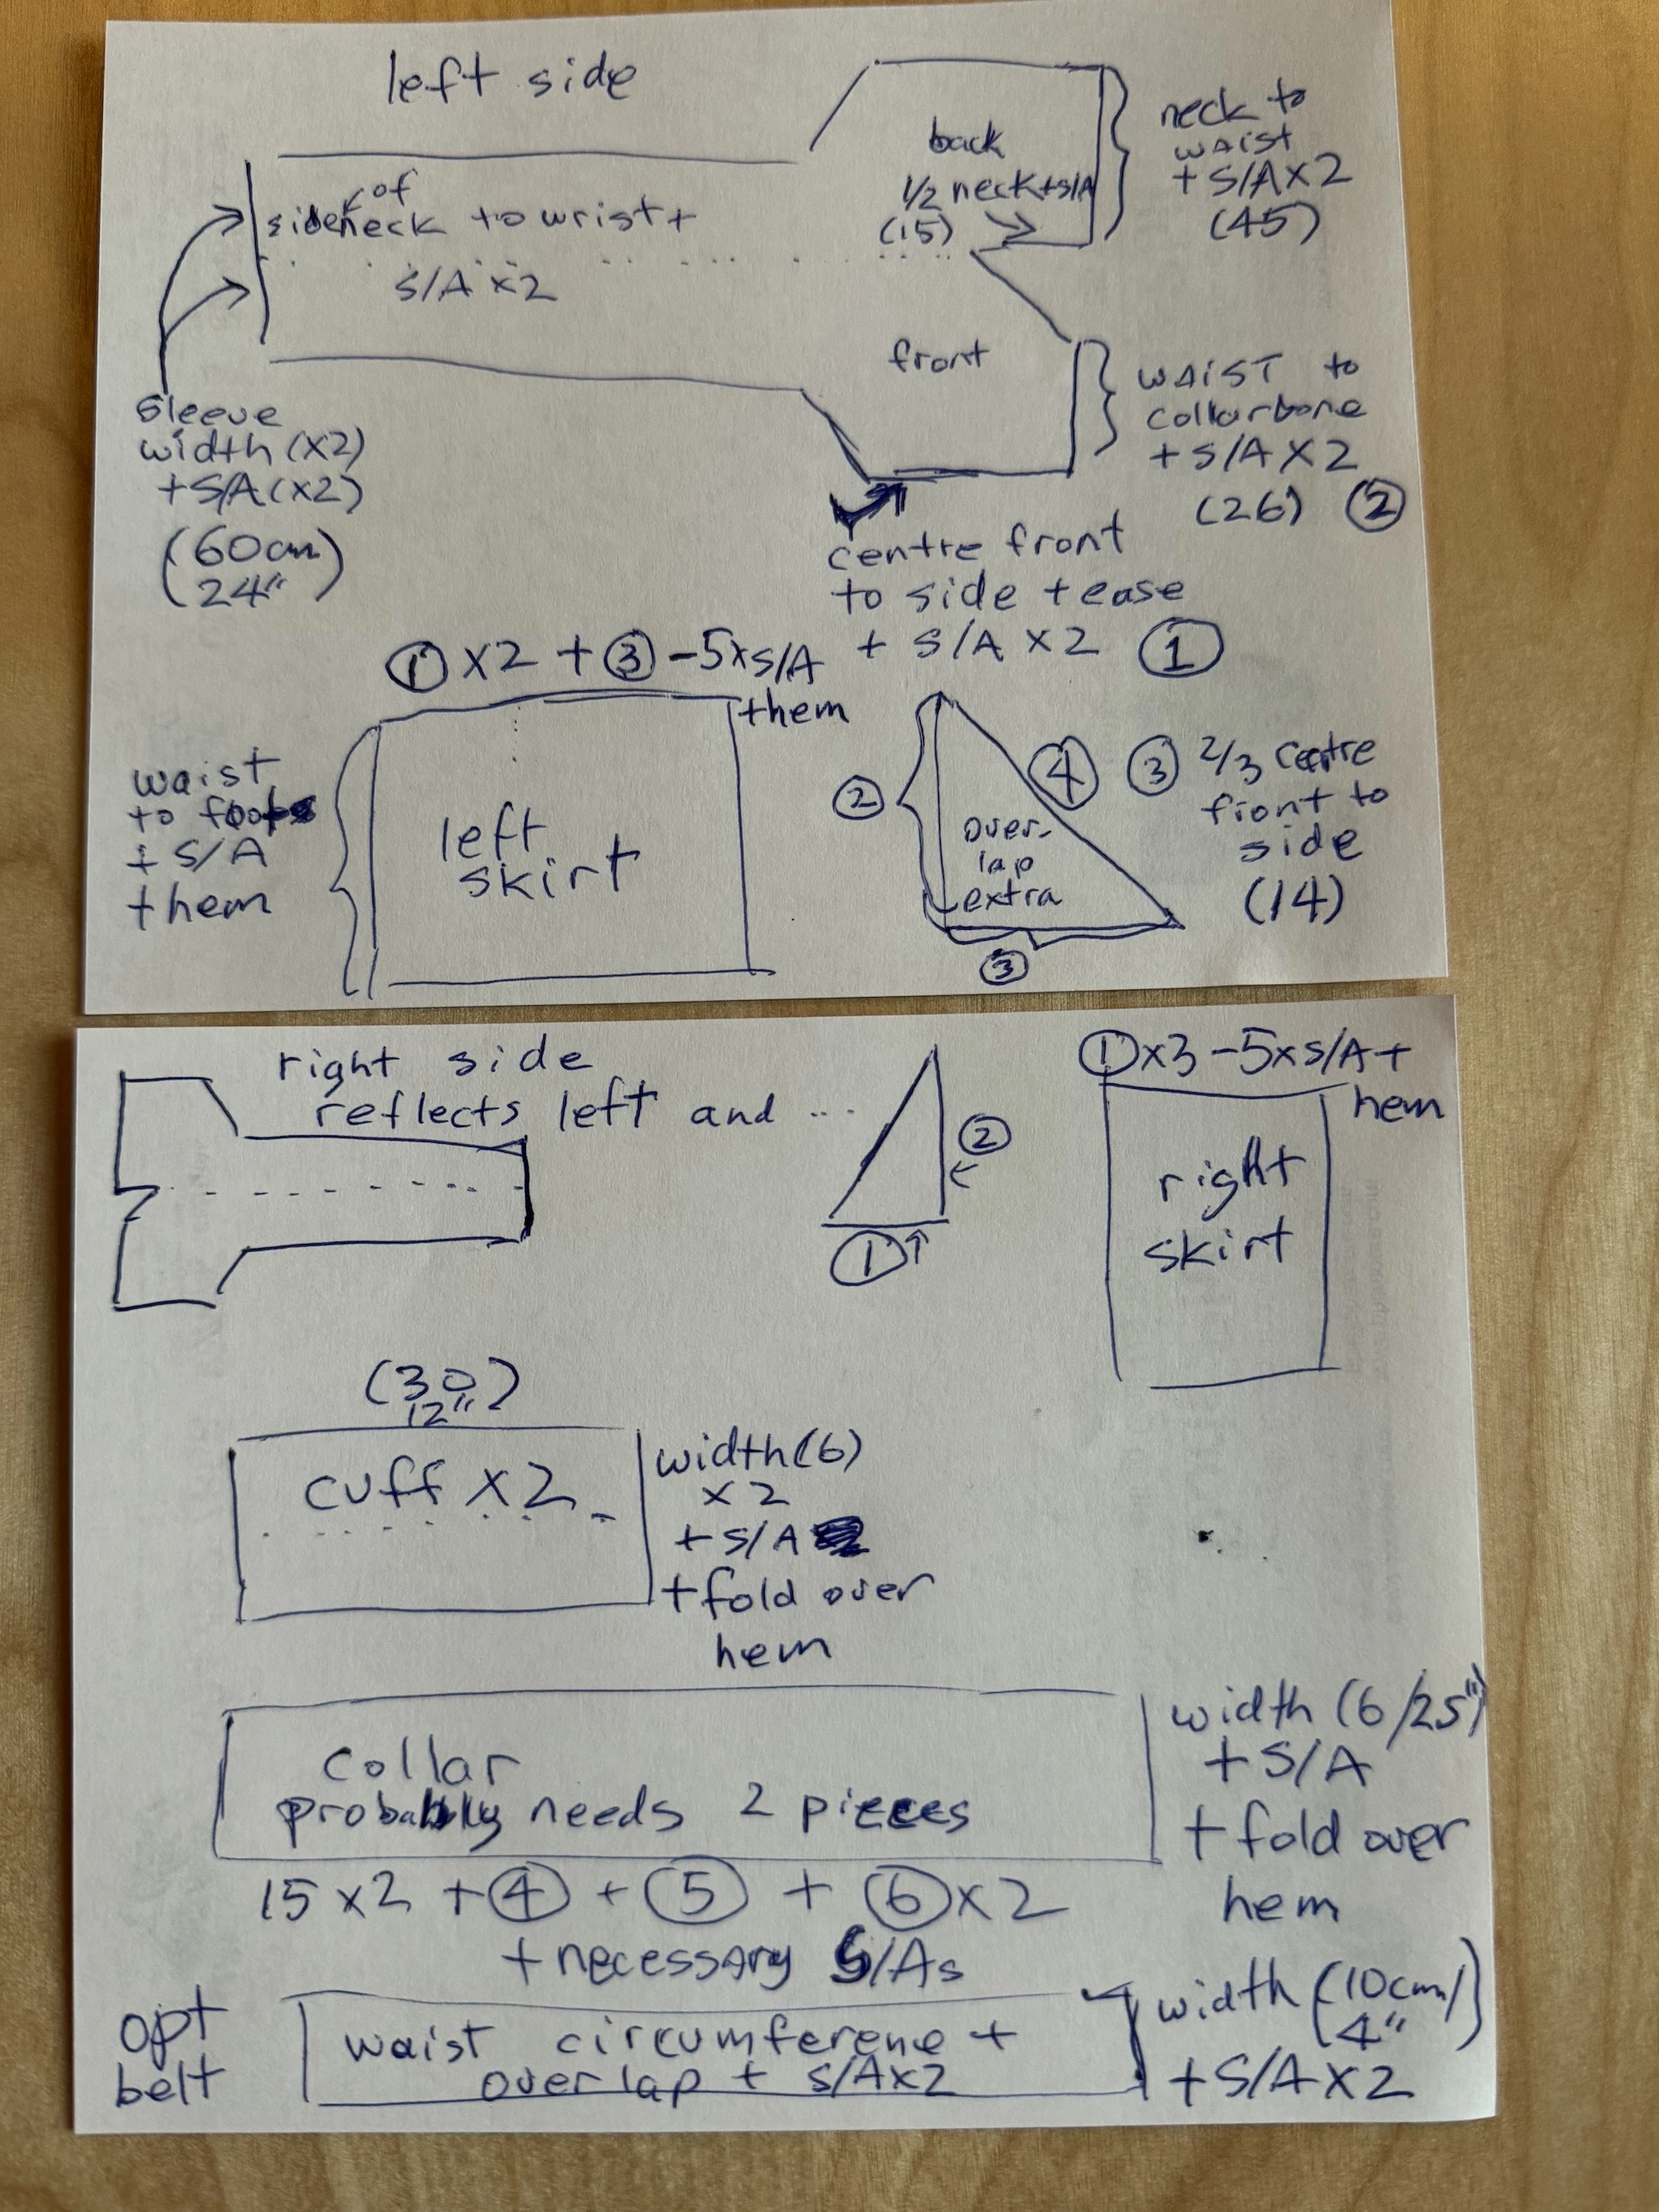 left side
back
1/2 neck+s/A
(15)
neck to
waist
+ S/A x2
(45)
of
side neck to wrist +
S/A x2
front
sleeve
width (x2)
+S/A (x2)
(60cm
24")
waist to
collarbone
+ S/A x2
(26) ②
centre front
to side + ease
+ S/A x2 ①
① x2 + ③ -5xS/A
+hem
waist
to foot
+ S/A
+ hem
left
skirt
②
④
over-
lap
extra
③
③ 2/3 centre
front to
side
(14)
right side
reflects left and ...
②
①
① x3 -5xS/A +
hem
right
skirt
(30
12")
cuff x2
width (6)
x2
+ S/A
+fold over
hem
collar
probably needs 2 pieces
width (6/25")
+ S/A
+ fold over
hem
15 x2 + ④ + ⑤ + ⑥ x2
+ necessary S/As
opt
belt
waist circumference +
overlap + S/Ax2
width (10cm/
4")
+S/A x2